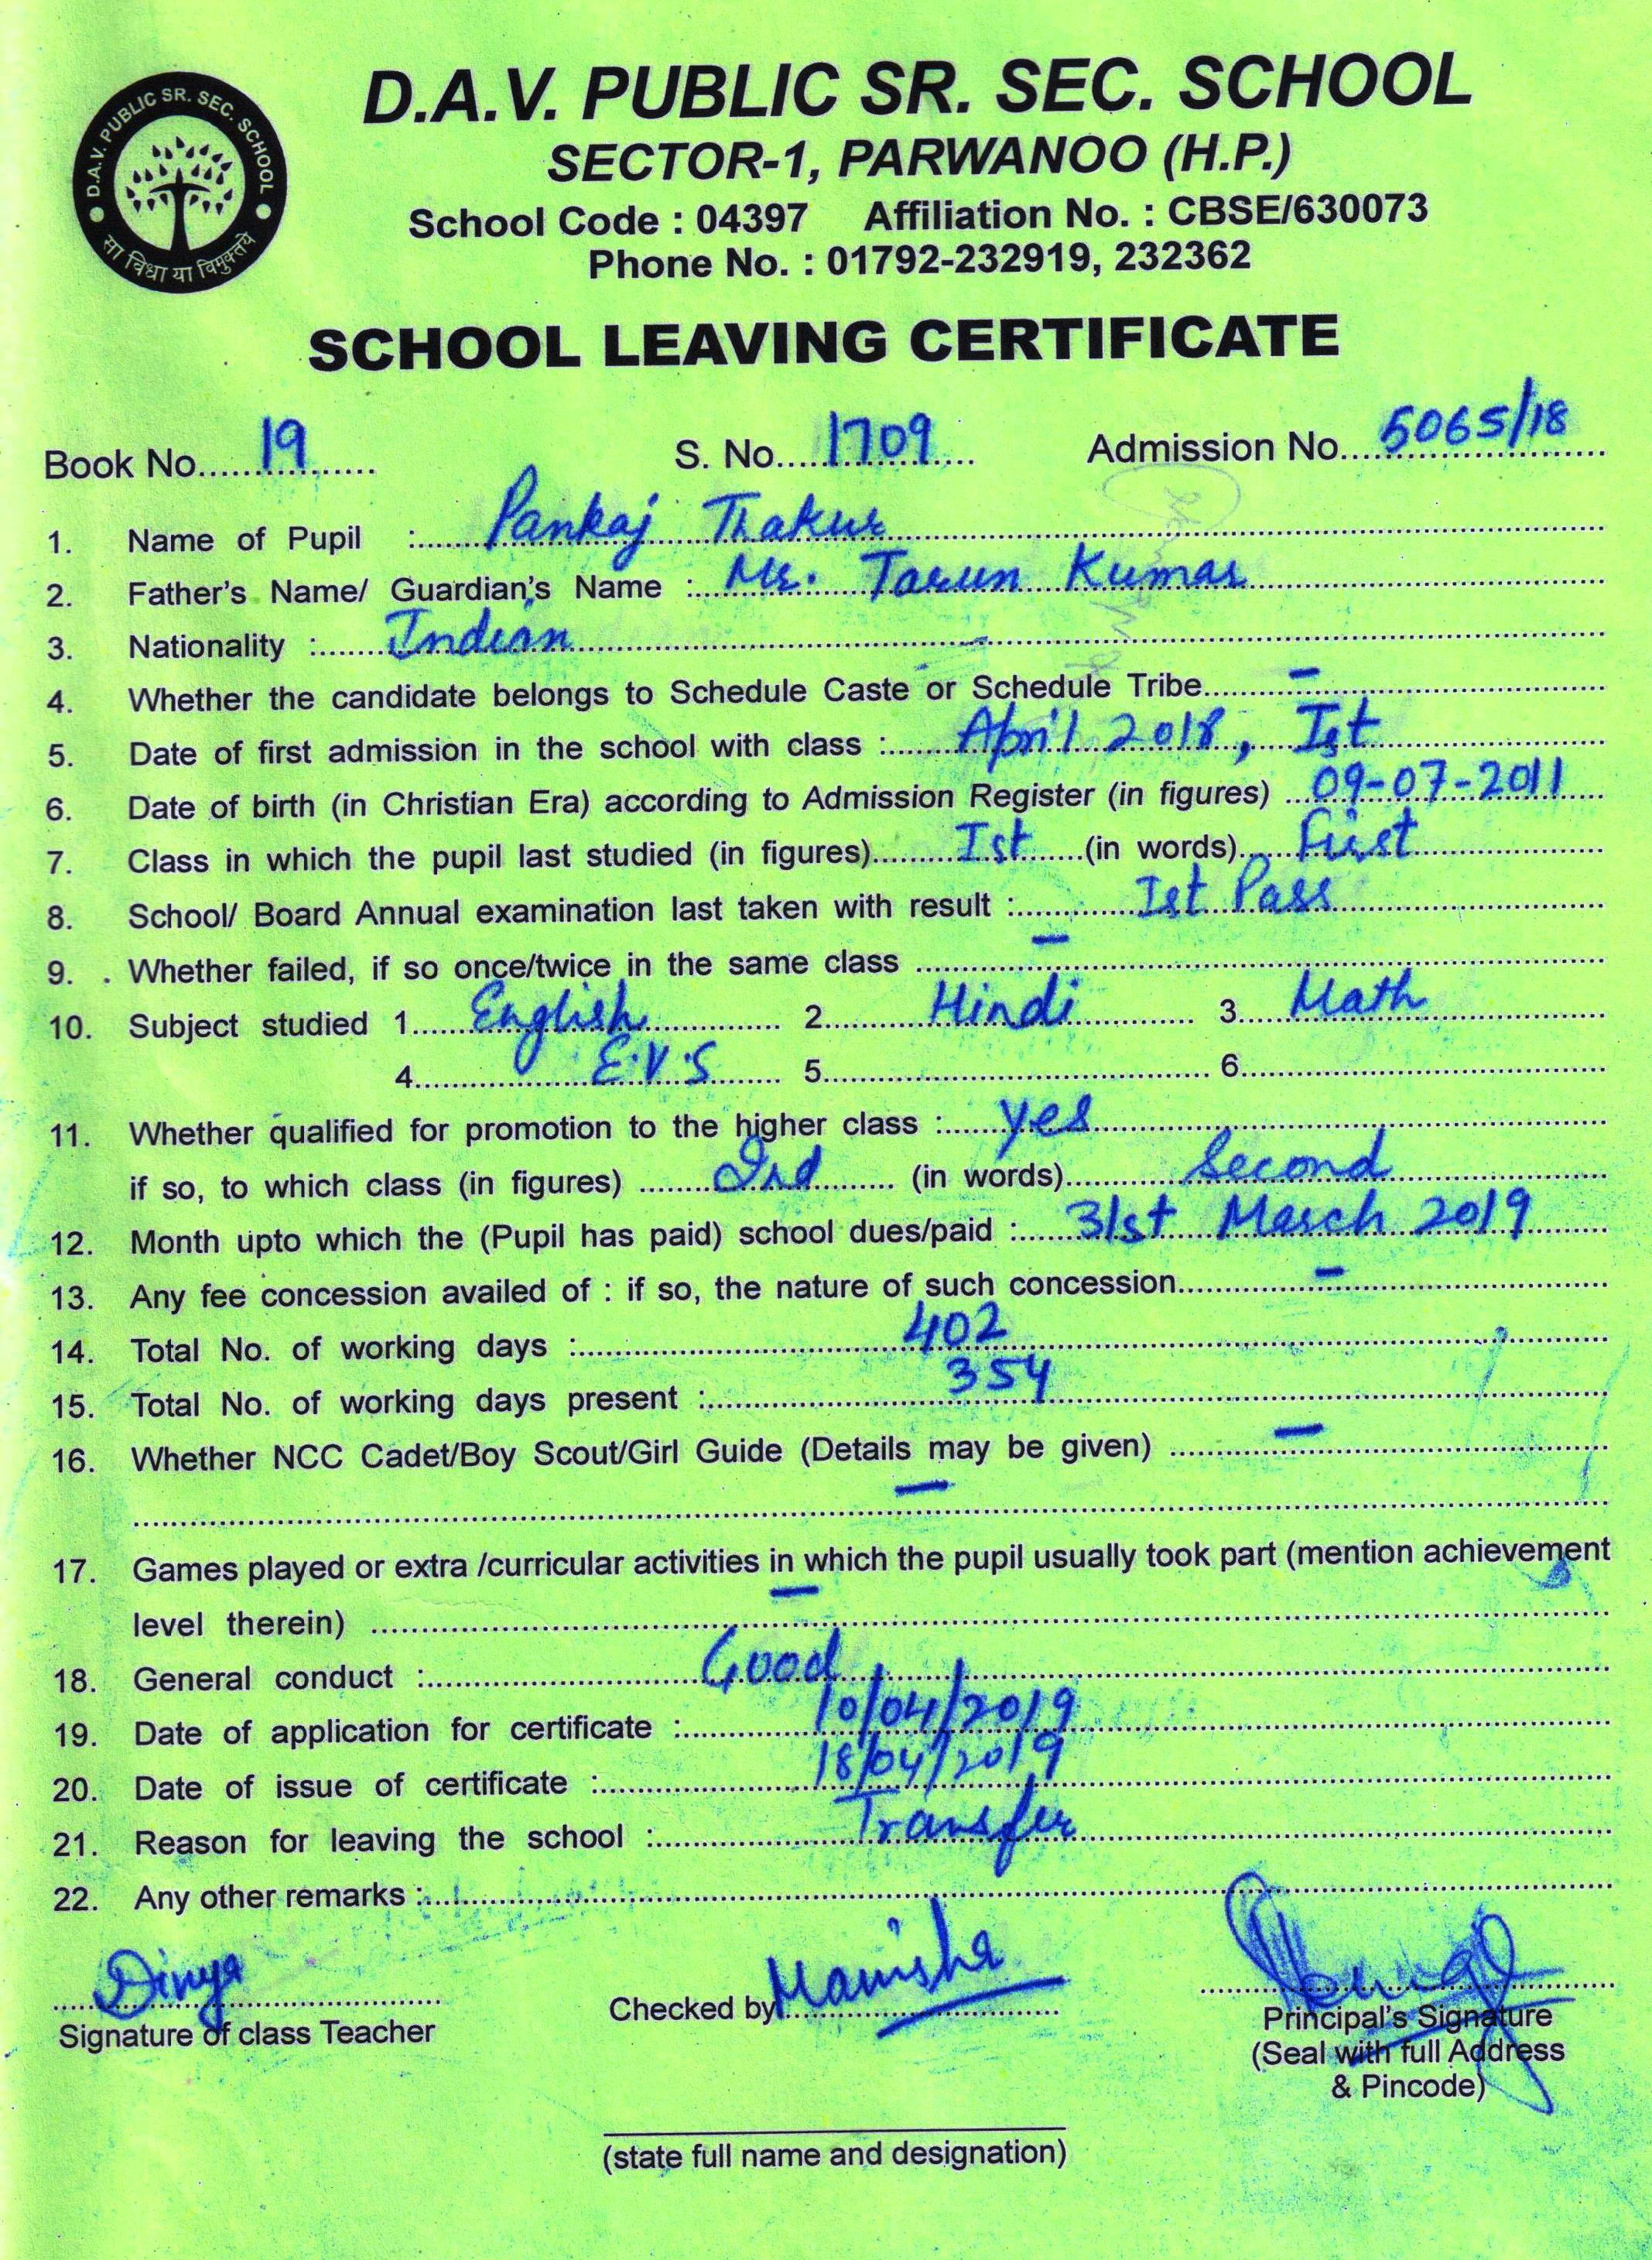 D.A.V. PUBLIC SR. SEC. SCHOOL
सा विद्या या विमुक्तये
D.A.V. PUBLIC SR. SEC. SCHOOL
SECTOR-1, PARWANOO (H.P.)
School Code : 04397 Affiliation No. : CBSE/630073
Phone No. : 01792-232919, 232362
SCHOOL LEAVING CERTIFICATE
Book No. 19 S. No. 1709 Admission No. 5065/18
1. Name of Pupil : Pankaj Thakur
2. Father's Name/ Guardian's Name : Mr. Tarun Kumar
3. Nationality : Indian
4. Whether the candidate belongs to Schedule Caste or Schedule Tribe –
5. Date of first admission in the school with class : April 2018, Ist
6. Date of birth (in Christian Era) according to Admission Register (in figures) 09-07-2011
7. Class in which the pupil last studied (in figures) Ist (in words) First
8. School/ Board Annual examination last taken with result : Ist Pass
9. Whether failed, if so once/twice in the same class –
10. Subject studied 1. English 2. Hindi 3. Math
4. E.V.S 5. 6.
11. Whether qualified for promotion to the higher class : yes
if so, to which class (in figures) 2nd (in words) Second
12. Month upto which the (Pupil has paid) school dues/paid : 31st March 2019
13. Any fee concession availed of : if so, the nature of such concession –
14. Total No. of working days : 402
15. Total No. of working days present : 354
16. Whether NCC Cadet/Boy Scout/Girl Guide (Details may be given) –
–
17. Games played or extra /curricular activities in which the pupil usually took part (mention achievement
level therein) –
18. General conduct : Good
19. Date of application for certificate : 10/04/2019
20. Date of issue of certificate : 18/04/2019
21. Reason for leaving the school : Transfer
22. Any other remarks :
Divya
Signature of class Teacher
Checked by Manisha
Principal's Signature
(Seal with full Address
& Pincode)
(state full name and designation)